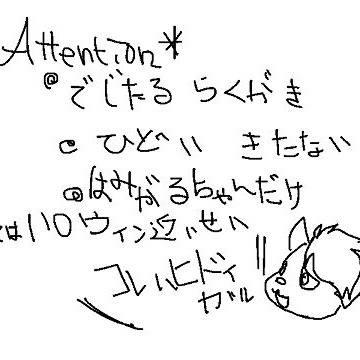 Attention*
@でじたる らくがき
@ひどい きたない
@はみがるちゃんだけ
はハロウィン近いせい
コレハヒドイ
ガル